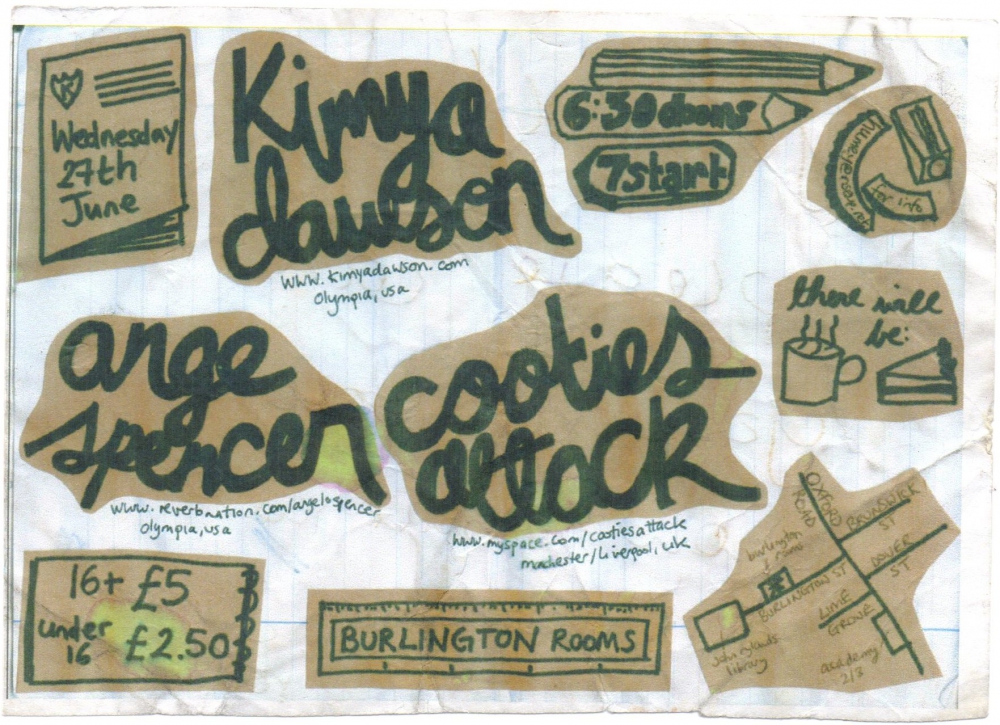 Wednesday
27th
June
Kimya
dawson
www.kimyadawson.com
olympia, usa
6:30 doors
7 start
for info
there will
be:
ange
spencer
www.reverbnation.com/angelospencer
olympia, usa
cooties
attack
www.myspace.com/cootiesattack
manchester/liverpool, uk
16+ £5
under
16 £2.50
BURLINGTON ROOMS
OXFORD
ROAD
BRUNSWICK
ST
burlington
rooms
DOVER
ST
BURLINGTON ST
LIME
GROVE
John rylands
library
academy
2/3